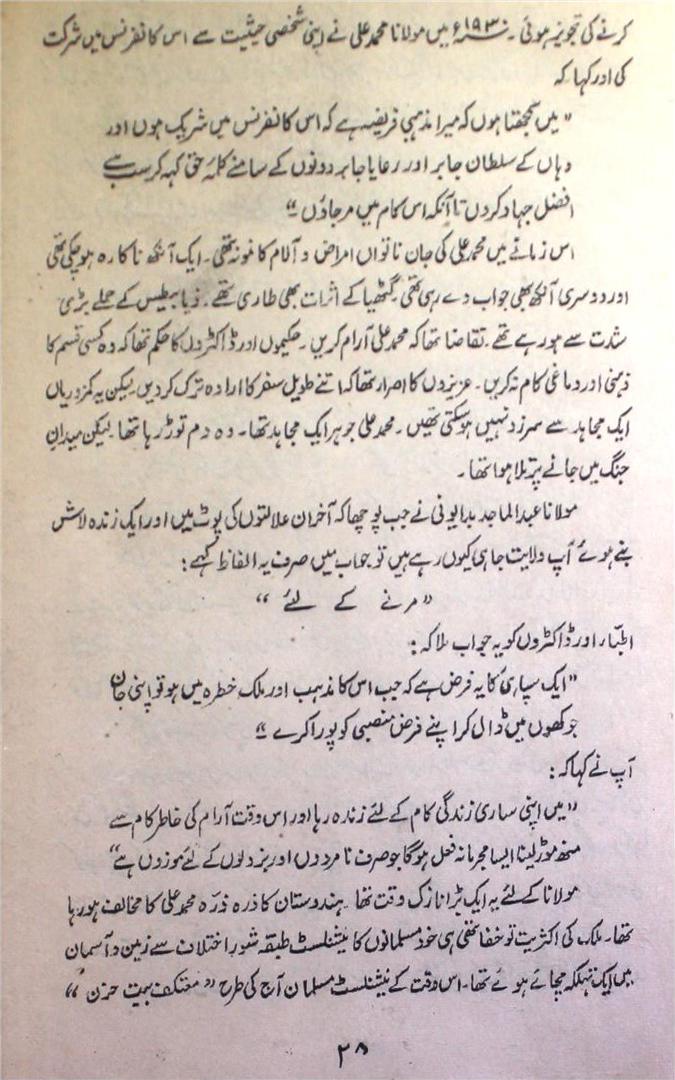 کرنے کی تجویز ہوئی۔ سنہ ۱۹۳۰ء میں مولانا محمد علی نے اپنی شخصی حیثیت سے اس کانفرنس میں شرکت
کی اور کہا کہ
"میں سمجھتا ہوں کہ میرا مذہبی فریضہ ہے کہ اس کانفرنس میں شریک ہوں اور
وہاں کے سلطان جابر اور رعایا جابر دونوں کے سامنے کلمۂ حق کہہ کر سب سے
افضل جہاد کردں تا آنکہ اس کام میں مر جاؤں"
اس زمانے میں محمد علی کی جان ناتواں امراض و آلام کا نمونہ تھی۔ ایک آنکھ ناکارہ ہو چکی تھی
اور دوسری آنکھ بھی جواب دے رہی تھی۔ گٹھیا کے اثرات بھی طاری تھے۔ ذیابیطس کے حملے بڑی
شدت سے ہو رہے تھے۔ تقاضا تھا کہ محمد علی آرام کریں۔ حکیموں اور ڈاکٹروں کا حکم تھا کہ وہ کسی قسم کا
ذہنی اور دماغی کام نہ کریں۔ عزیزوں کا اصرار تھا کہ اتنے طویل سفر کا ارادہ ترک کر دیں۔ لیکن یہ کمزوریاں
ایک مجاہد سے سرزد نہیں ہو سکتی تھیں۔ محمد علی جوہر ایک مجاہد تھا۔ وہ دم توڑ رہا تھا۔ لیکن میدانِ
جنگ میں جانے پر تلا ہوا تھا۔
مولانا عبدالماجد بدایونی نے جب پوچھا کہ آخر ان علالتوں کی پوٹ میں اور ایک زندہ لاش
بنے ہوئے آپ ولایت جا ہی کیوں رہے ہیں تو جواب میں صرف یہ الفاظ کہے:
"مرنے کے لئے"
اطبّاء اور ڈاکٹروں کو یہ جواب ملا کہ:
"ایک سپاہی کا یہ فرض ہے کہ جب اس کا مذہب اور ملک خطرہ میں ہو تو اپنی جان
جوکھوں میں ڈال کر اپنے فرض منصبی کو پورا کرے"
آپ نے کہا کہ:
"میں اپنی ساری زندگی کام کے لئے زندہ رہا اور اس وقت آرام کی خاطر کام سے
منھ موڑ لینا ایسا مجرمانہ فعل ہوگا جو صرف نامردوں اور بزدلوں کے لئے موزوں ہے"
مولانا کے لئے یہ ایک بڑا نازک وقت تھا۔ ہندوستان کا ذرہ ذرّہ محمد علی کا مخالف ہو رہا
تھا۔ ملک کی اکثریت تو خفا تھی ہی خود مسلمانوں کا نیشنلسٹ طبقہ شورِ اختلاف سے زمین و آسمان
میں ایک تہلکہ مچائے ہوئے تھا۔ اس وقت کے نیشنلسٹ مسلمان آج کی طرح "معتکف بیت حزن"
۲۸